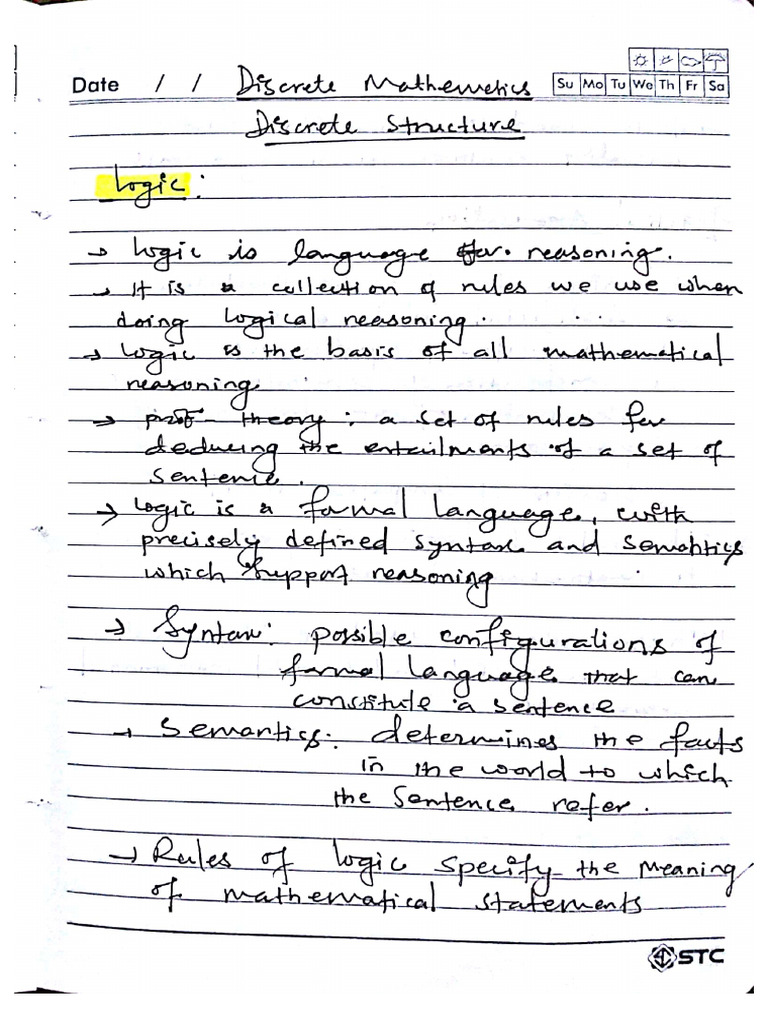 Date / / Discrete Mathemetics Su Mo Tu We Th Fr Sa
Discrete Structure
Logic:
→ Logic is language for reasoning.
→ It is a collection of rules we use when
doing logical reasoning.
→ Logic is the basis of all mathematical
reasoning
→ proof theory: a set of rules for
deducing the entailments of a set of
sentence.
→ Logic is a formal language, with
precisely defined syntax and semantics
which support reasoning
→ Syntax: possible configurations of
formal language that can
constitute a sentence
→ Semantics: determines the facts
in the world to which
the sentence refer.
→ Rules of logic specify the meaning
of mathematical statements
STC